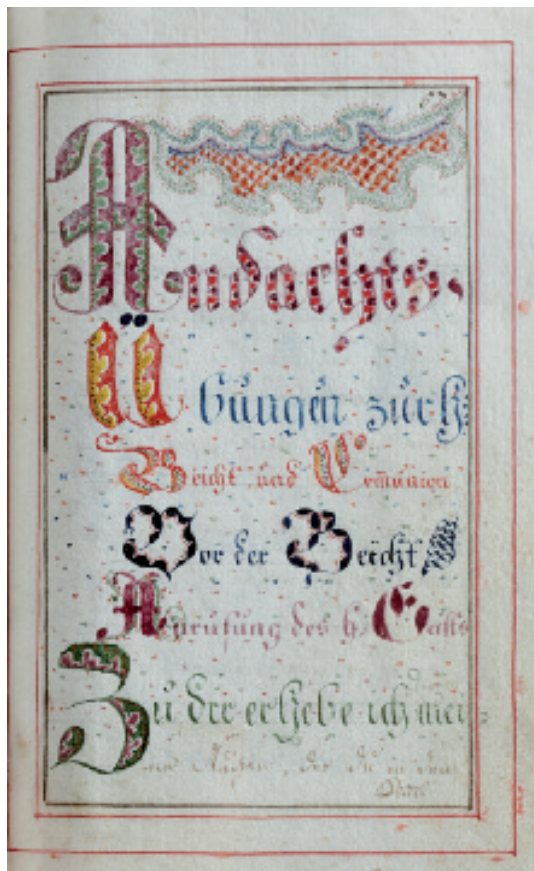 Andachts-
Übungen zur H:
Beicht und Communion
Vor der Beicht
Anrufung des h. Geists
Zu dir erhebe ich mei-
nen der du in dem